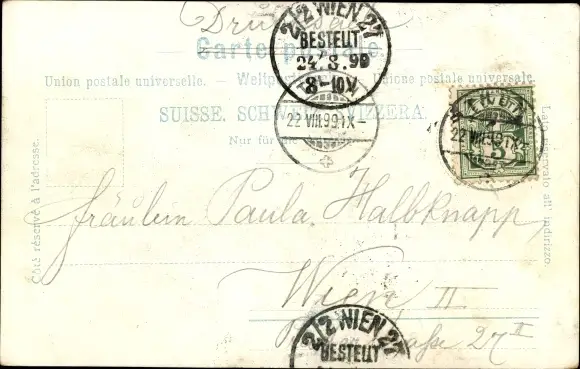 Drucksache
Carte postale.
Union postale universelle. — Weltpostverein. — Unione postale universale.
SUISSE. SCHWEIZ. SVIZZERA.
Nur für die
Côté réservé à l'adresse.
Lato riservato all' indirizzo
2/2 WIEN 27
BESTELLT
24.8.99
8-10V
22 VIII.99 IX-
22 VIII.99 IX-
5
Fräulein Paula Halbknapp
Wien II.
straße 27 II
2/2 WIEN 27
BESTELLT